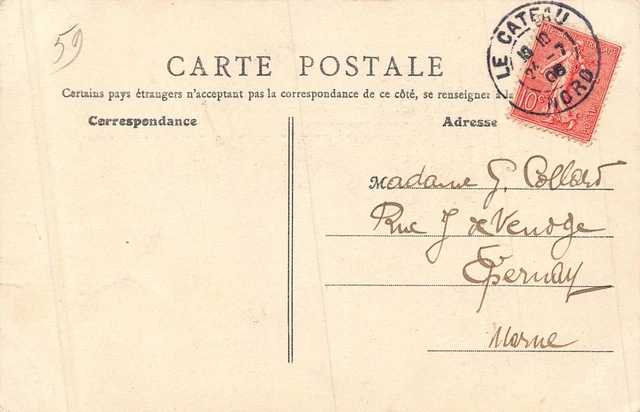 59
CARTE POSTALE
Certains pays étrangers n'acceptant pas la correspondance de ce côté, se renseigner à la
Correspondance
Adresse
LE CATEAU
24 -7
06
NORD
10c
Madame G. Collard
Rue J de Venoge
Épernay
Marne